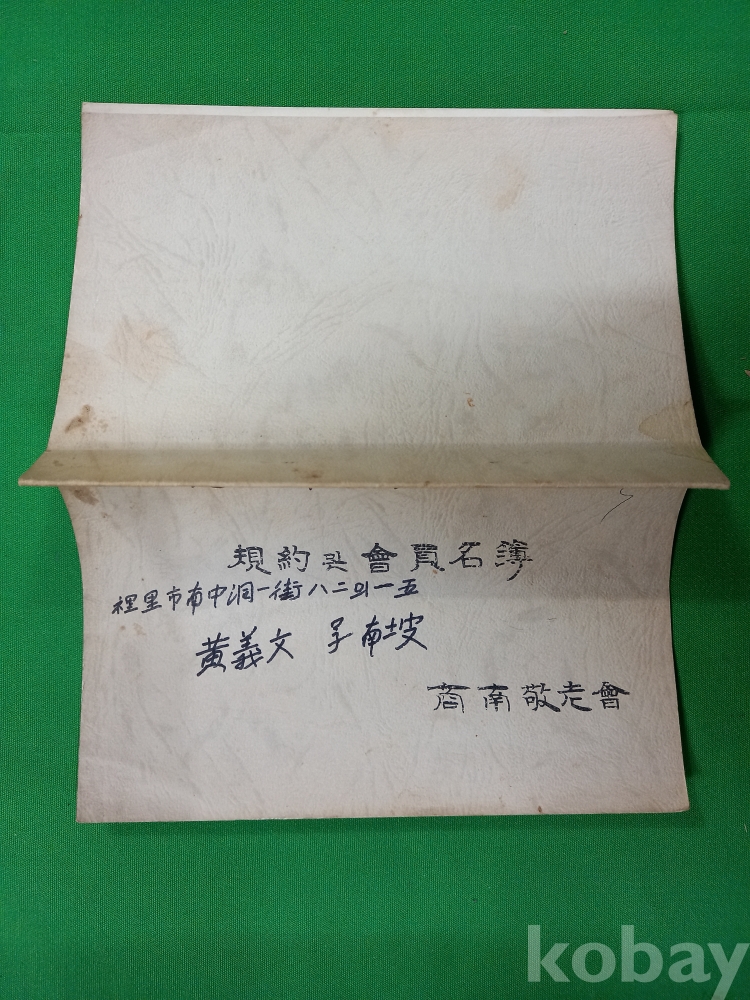 規約및會員名簿
裡里市南中洞一街八二의一五
黃義文 号南坡
商南敬老會
kobay